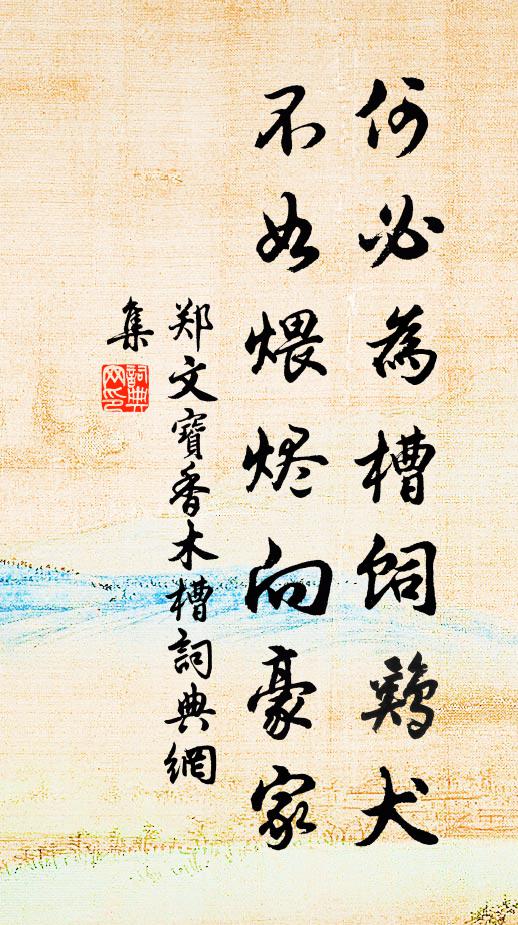 何必為槽飼鷄犬
不如煨烬向豪家
郑文寶香木槽詞典網
集
詞典
网印